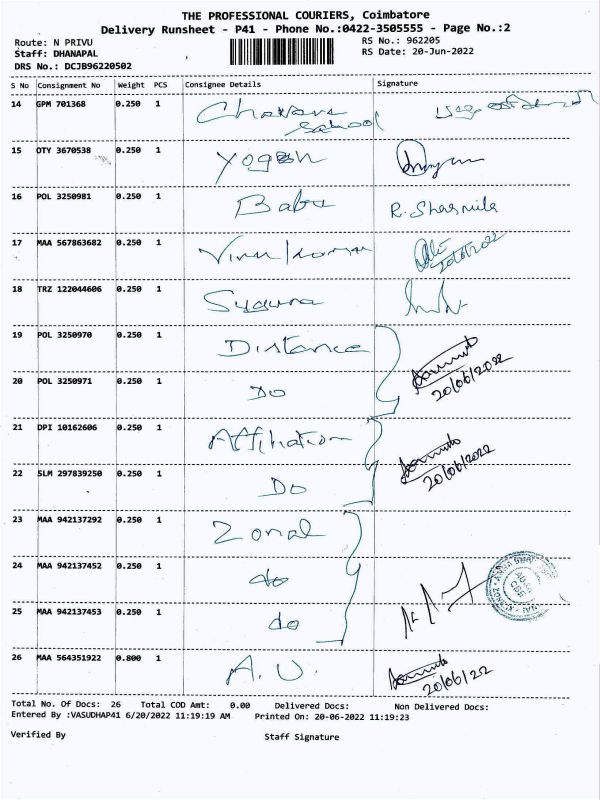 THE PROFESSIONAL COURIERS, Coimbatore
Delivery Runsheet - P41 - Phone No.:0422-3505555 - Page No.:2
Route: N PRIVU
RS No.: 962205
Staff: DHANAPAL
RS Date: 20-Jun-2022
DRS No.: DCJB96220502
S No Consignment No Weight PCS Consignee Details Signature
14 GPM 701368 0.250 1 School
15 OTY 3670538 0.250 1 Yogesh
16 POL 3250981 0.250 1 Babu R. Sharmila
17 MAA 567863682 0.250 1
18 TRZ 122044606 0.250 1 Suguna
19 POL 3250970 0.250 1 Distance
20/06/2022
20 POL 3250971 0.250 1 DO
21 DPI 10162606 0.250 1 Affiliation
20/06/2022
22 SLM 297839250 0.250 1 Do
23 MAA 942137292 0.250 1 Zonal
24 MAA 942137452 0.250 1 do
25 MAA 942137453 0.250 1 do
26 MAA 564351922 0.800 1 A.U. 20/06/22
Total No. Of Docs: 26 Total COD Amt: 0.00 Delivered Docs: Non Delivered Docs:
Entered By :VASUDHAP41 6/20/2022 11:19:19 AM Printed On: 20-06-2022 11:19:23
Verified By Staff Signature